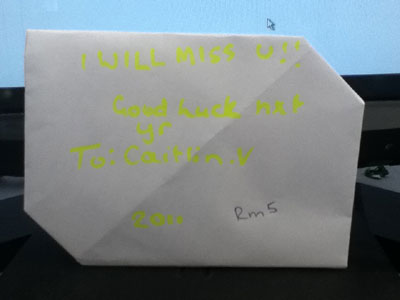 I WILL MISS U!!
Good Luck nxt
yr
To: Caitlin.V
2011
Rm5